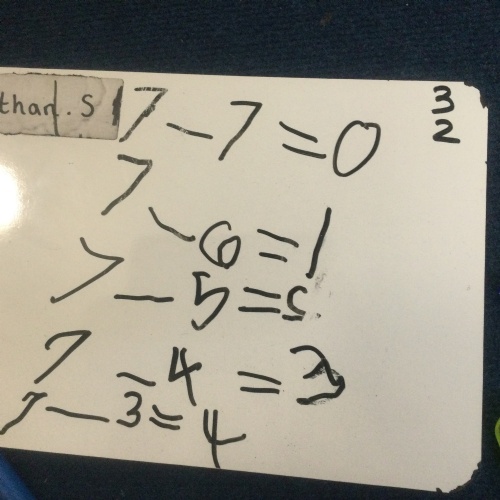 than. S
7 - 7 = 0
7 - 6 = 1
7 - 5 =
7 - 4 = 3
7 - 3 = 4
3
2